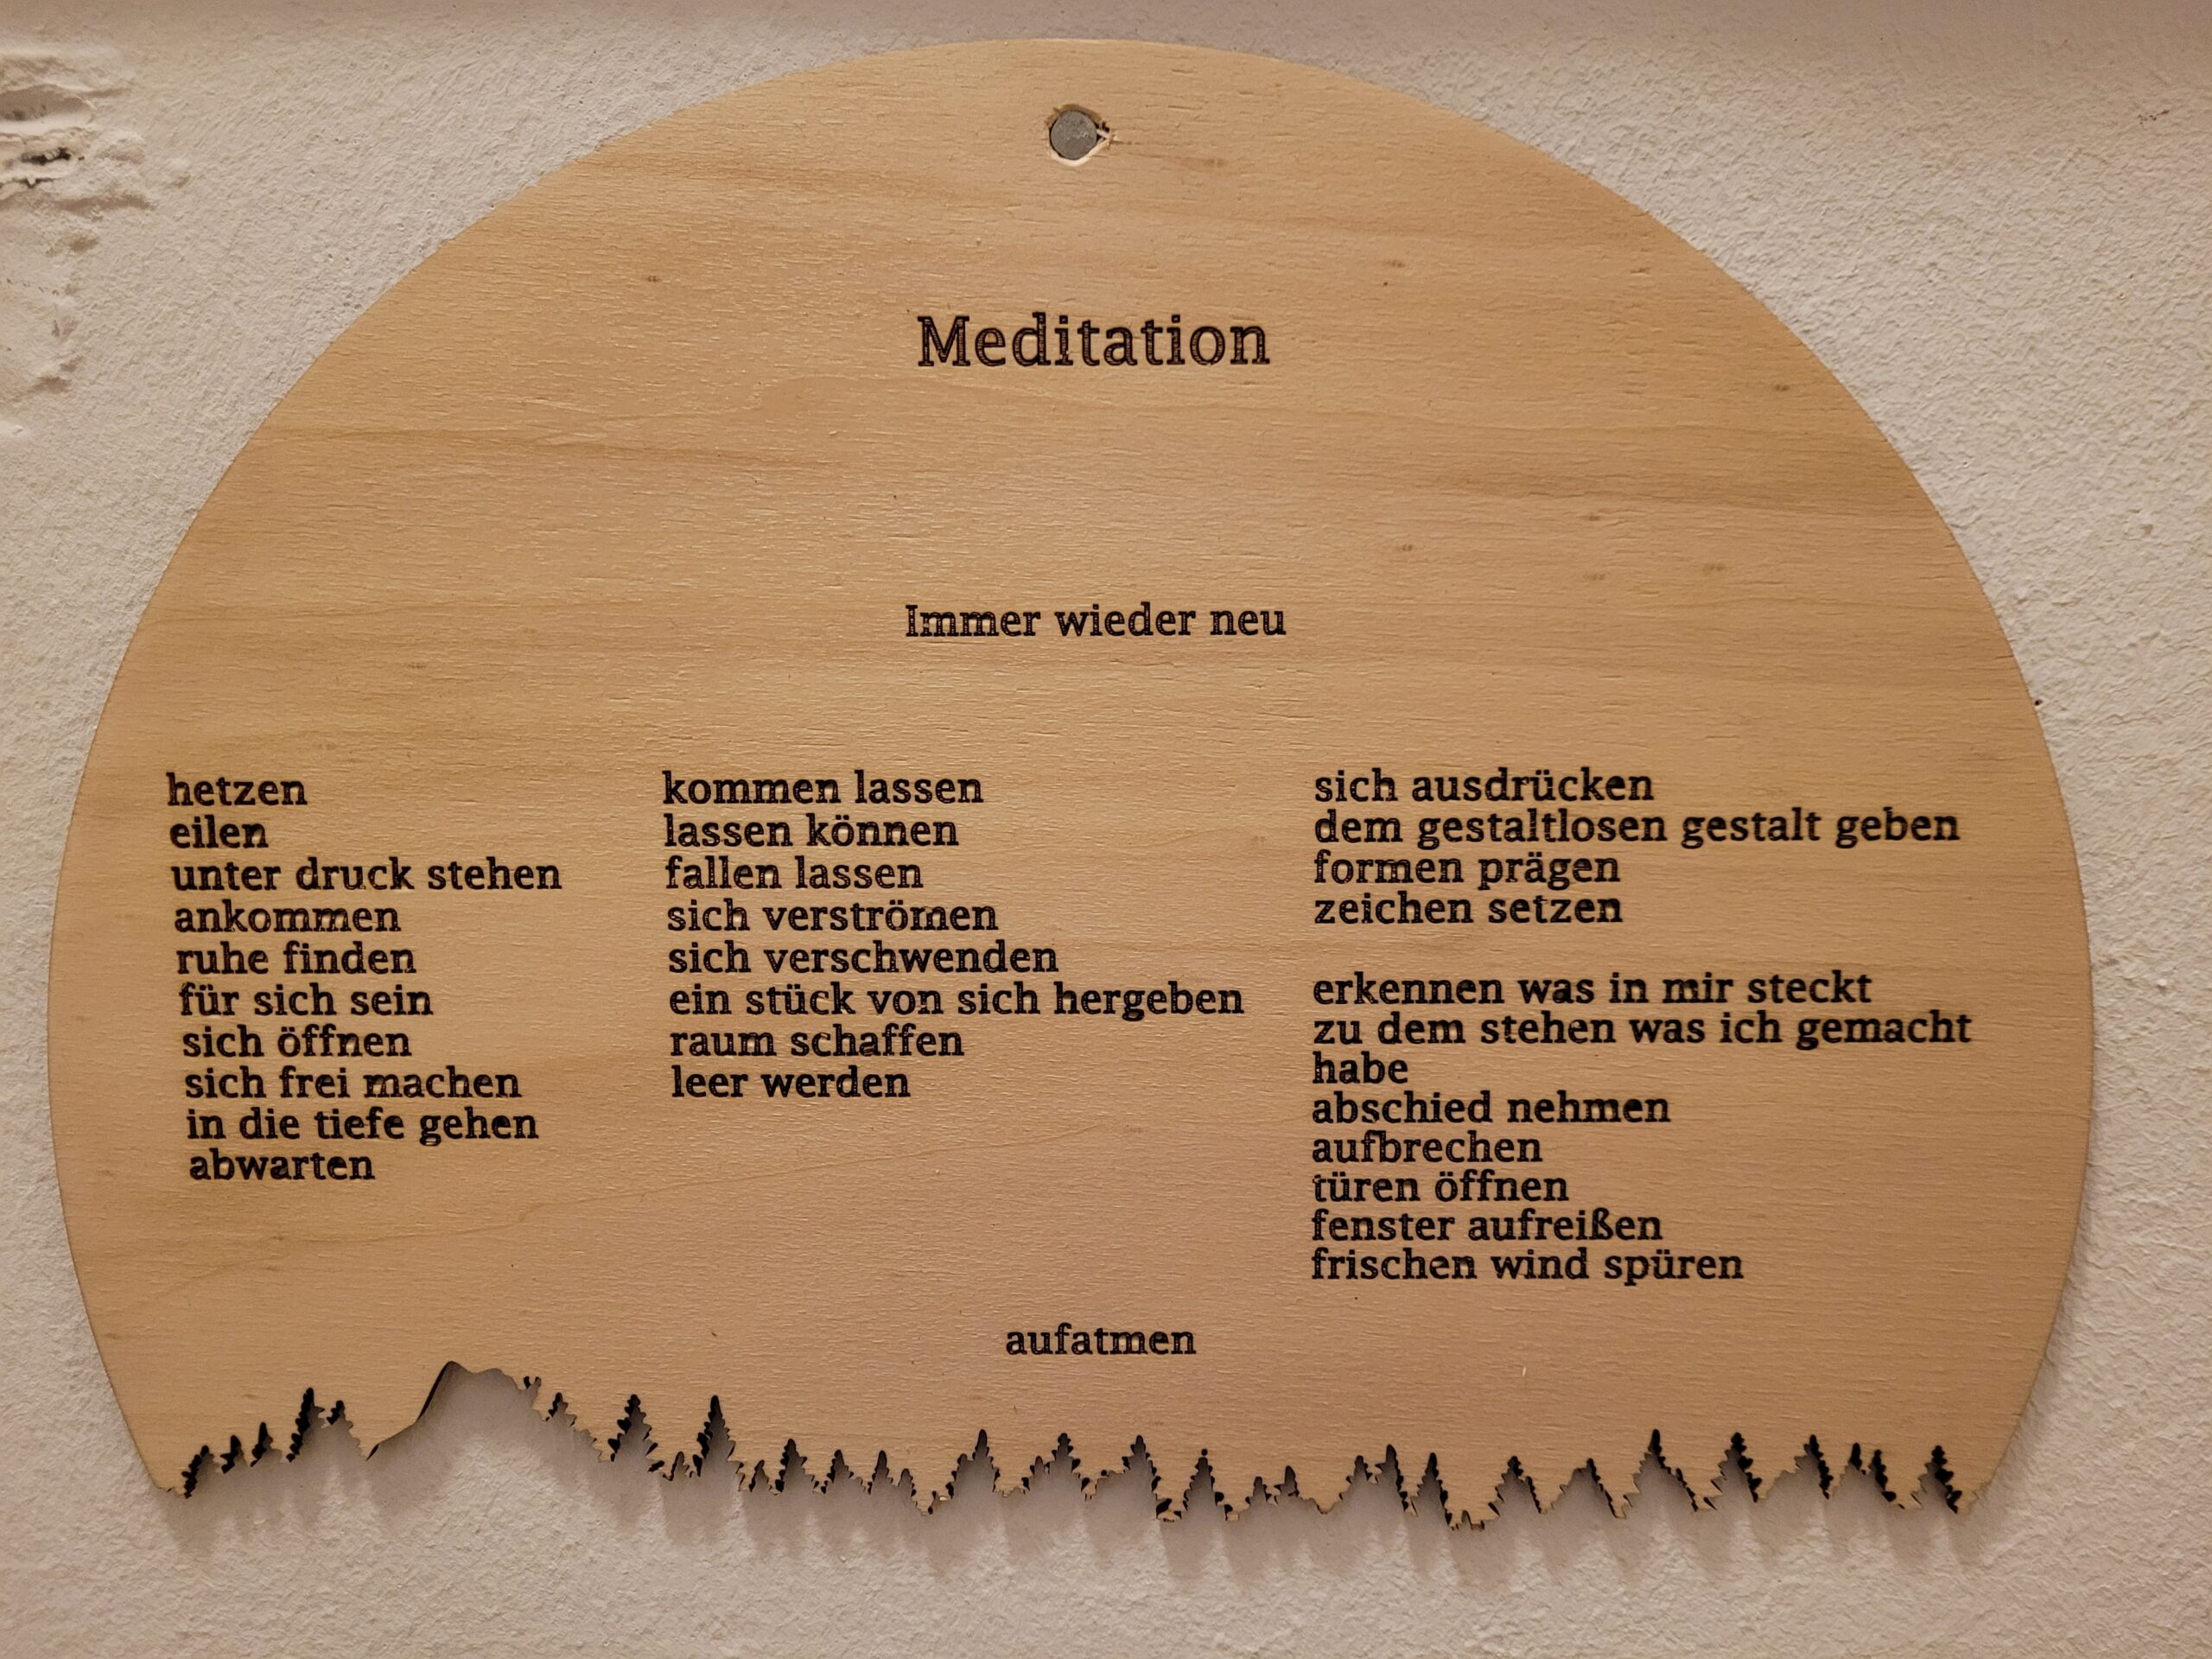 Meditation
Immer wieder neu
hetzen
eilen
unter druck stehen
ankommen
ruhe finden
für sich sein
sich öffnen
sich frei machen
in die tiefe gehen
abwarten
kommen lassen
lassen können
fallen lassen
sich verströmen
sich verschwenden
ein stück von sich hergeben
raum schaffen
leer werden
sich ausdrücken
dem gestaltlosen gestalt geben
formen prägen
zeichen setzen
erkennen was in mir steckt
zu dem stehen was ich gemacht
habe
abschied nehmen
aufbrechen
türen öffnen
fenster aufreißen
frischen wind spüren
aufatmen